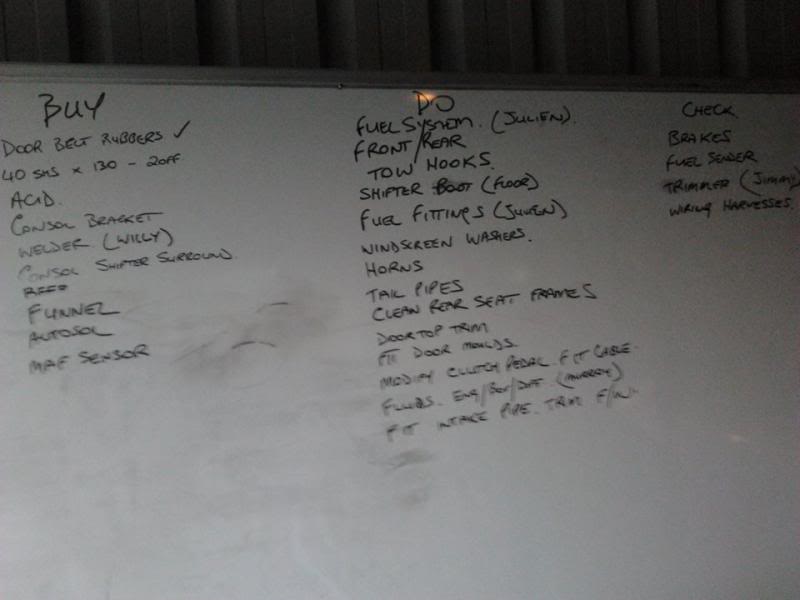 BUY
DOOR BELT RUBBERS ✓
40 SHS x 130 - 2OFF
ACID.
CONSOL BRACKET
WELDER (WILLY)
CONSOL SHIFTER SURROUND.
FUNNEL
AUTOSOL
MAF SENSOR
DO
FUEL SYSTEM. (JULIEN).
FRONT/REAR
TOW HOOKS.
SHIFTER BOOT (FLOOR)
FUEL FITTINGS (JULIEN)
WINDSCREEN WASHERS.
HORNS
TAIL PIPES
CLEAN REAR SEAT FRAMES
DOOR TOP TRIM
FIT DOOR MOULDS.
MODIFY CLUTCH PEDAL. FIT CABLE.
FLUIDS. ENG/BOX/DIFF. (MURRAY)
FIT INTAKE PIPE. TRIM
CHECK.
BRAKES
FUEL SENDER
TRIMMER (JIMMY)
WIRING HARNESSES.